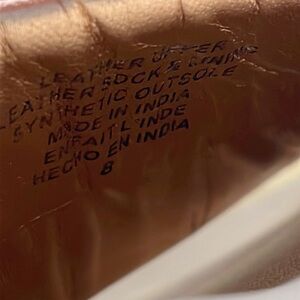 LEATHER UPPER
LEATHER SOCK & LINING
SYNTHETIC OUTSOLE
MADE IN INDIA
ENFAIT L'INDE
HECHO EN INDIA
8